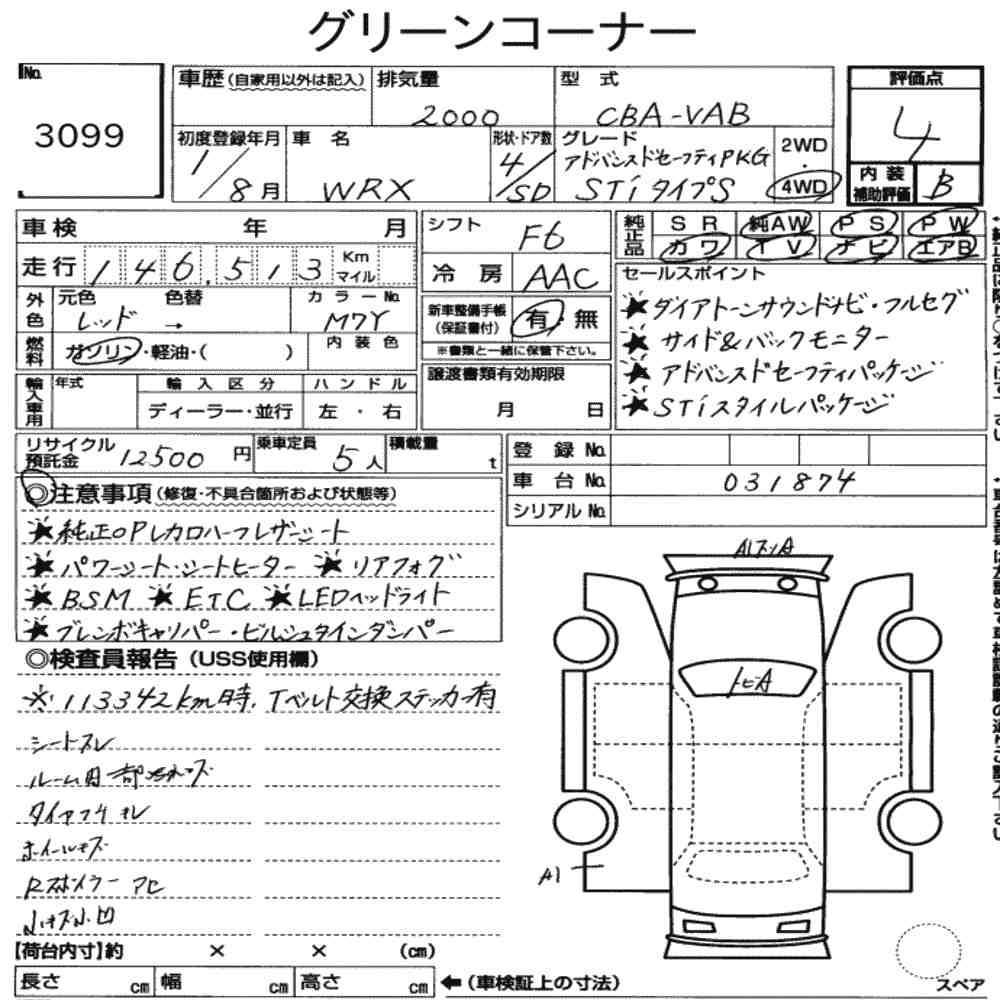 グリーンコーナー
No. 3099
車歴(自家用以外は記入) 排気量 2000 型式 CBA-VAB 評価点 4
初度登録年月 1/8月 車名 WRX 形状・ドア数 4/SD グレード アドバンスドセーフティPKG STiタイプS 2WD・4WD 内装補助評価 B
車検 年 月 シフト F6 純正品 SR 純AW PS PW
カワ TV ナビ エアB
走行 146,513 Km マイル 冷房 AAC
外色 元色 レッド 色替 → カラーNo. M7Y 新車整備手帳(保証書付) 有・無
※書類と一緒に保管下さい。
燃料 ガソリン・軽油・( ) 内装色
セールスポイント
★ダイアトーンサウンドナビ・フルセグ
★サイド&バックモニター
★アドバンスドセーフティパッケージ
★STiスタイルパッケージ
輸入車用 年式 輸入区分 ディーラー・並行 ハンドル 左・右
譲渡書類有効期限 月 日
リサイクル預託金 12500円 乗車定員 5人 積載量 t
登録No.
車台No. 031874
シリアルNo.
◎注意事項(修復・不具合箇所および状態等)
★純正OPレカロハーフレザーシート
★パワーシート・シートヒーター ★リアフォグ
★BSM ★ETC ★LEDヘッドライト
★ブレンボキャリパー・ビルシュタインダンパー
◎検査員報告(USS使用欄)
※113342km時、Tベルト交換ステッカー有
シートスレ
タイヤ
ホイールキズ
Rスポイラー アセ
小キズ小凹
A1
A1
【荷台内寸】約 × × (cm)
長さ cm 幅 cm 高さ cm ←(車検証上の寸法)
スペア